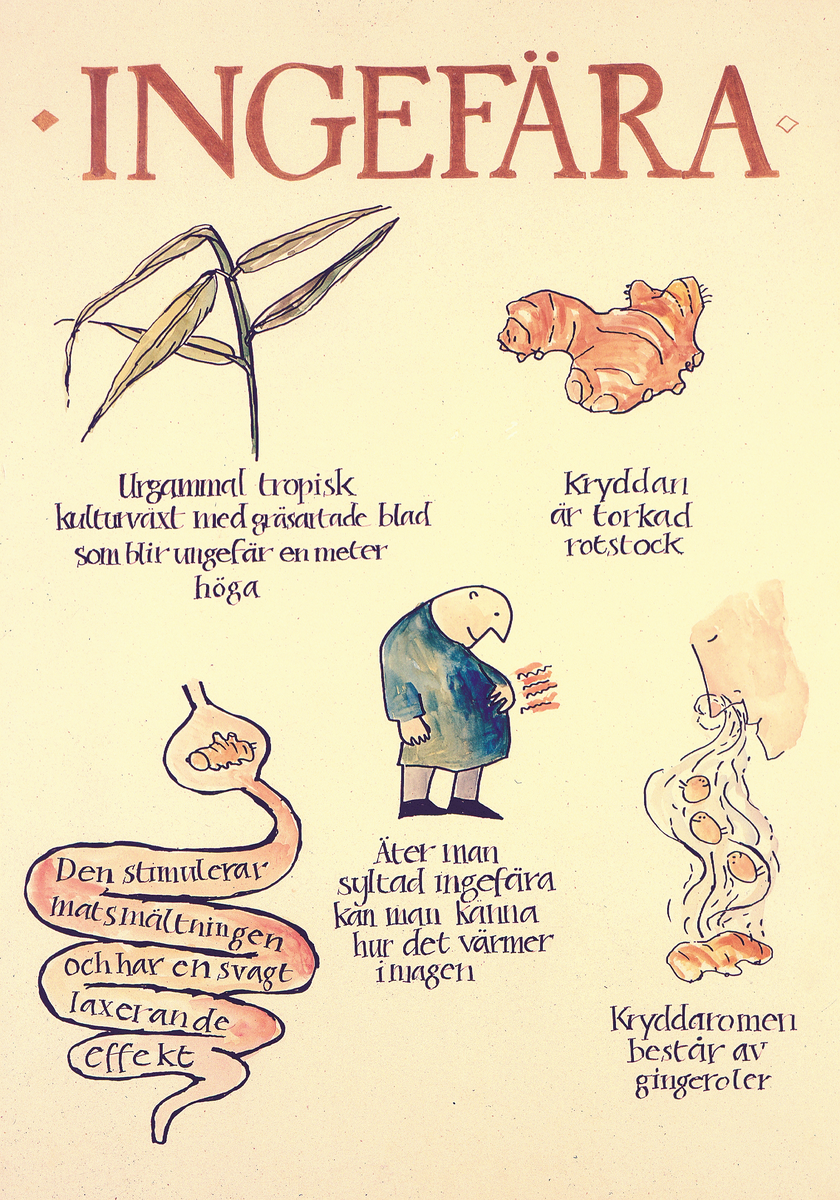 INGEFÄRA
Urgammal tropisk
kulturväxt med gräsartade blad
som blir ungefär en meter
höga
Kryddan
är torkad
rotstock
Den stimulerar
matsmältningen
och har en svagt
laxerande
effekt
Äter man
syltad ingefära
kan man känna
hur det värmer
i magen
Kryddaromen
består av
gingeroler